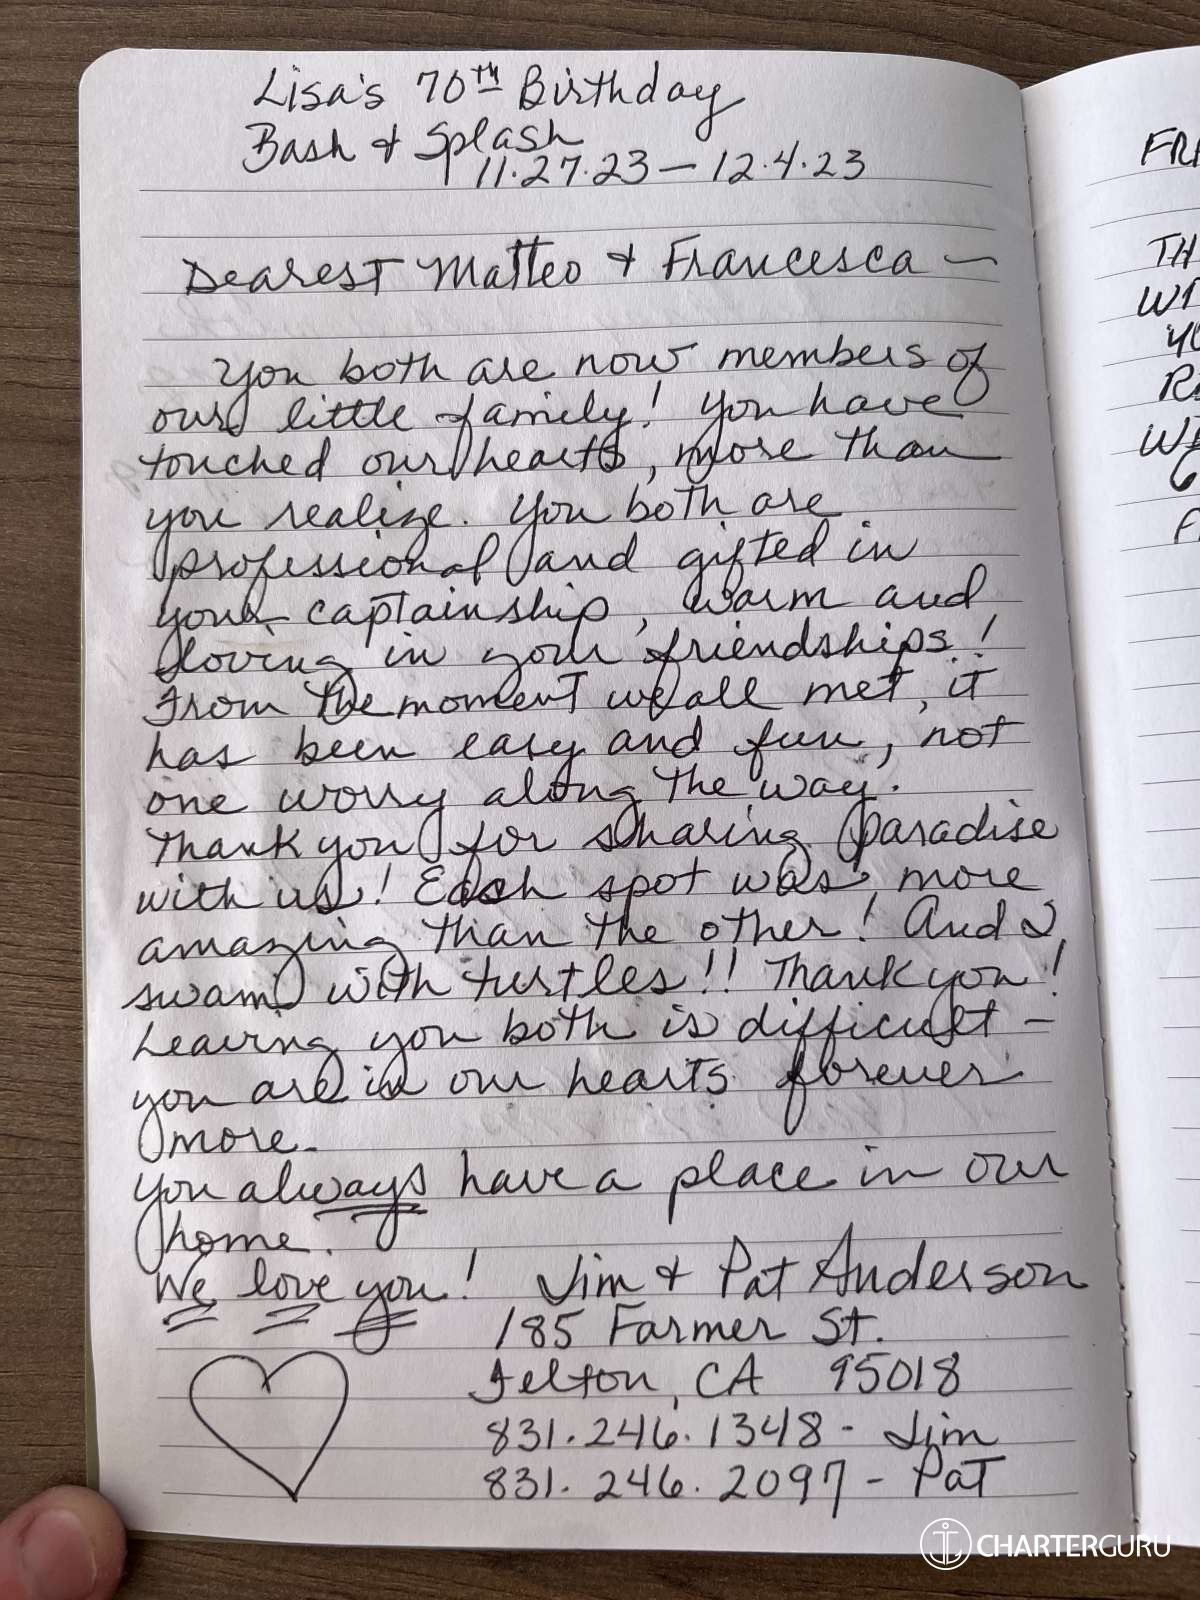 Lisa's 70th Birthday
Bash & Splash
11.27.23 – 12.4.23
Dearest Matteo & Francesca –
You both are now members of
our little family! You have
touched our hearts, more than
you realize. You both are
professional and gifted in
your captainship, warm and
loving in your friendships!
From the moment we all met, it
has been easy and fun, not
one worry along the way.
Thank you for sharing paradise
with us! Each spot was more
amazing than the other! And I
swam with turtles!! Thank you!
Leaving you both is difficult –
you are in our hearts forever
more.
You always have a place in our
home.
We love you! Jim & Pat Anderson
185 Farmer St.
Felton, CA 95018
831.246.1348 - Jim
831.246.2097 - Pat
FRI
TH
WI
R
CHARTERGURU